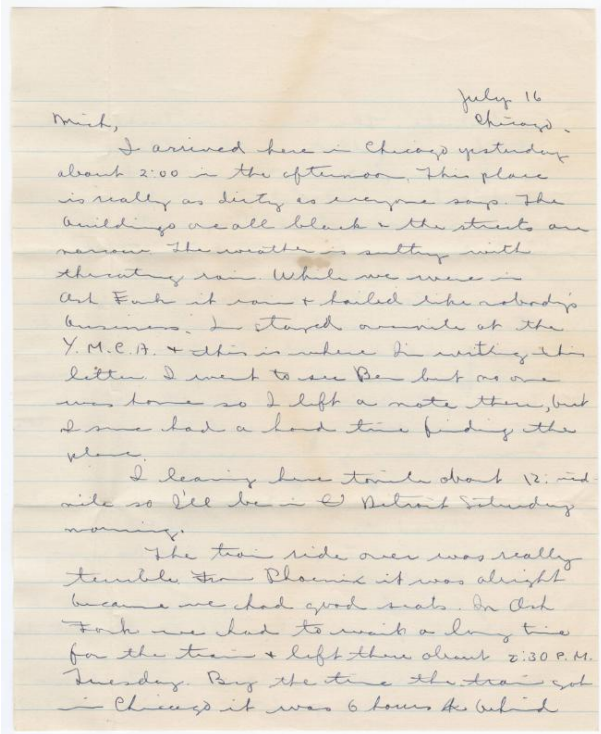 July 16
Chicago.
Mich,
I arrived here in Chicago yesterday
about 2:00 in the afternoon. This place
is really as dirty as everyone says. The
buildings are all black & the streets are
narrow. The weather is sultry with
threating rain. While we were in
Ash Fork it rain & hailed like nobody's
business. I stayed overnite at the
Y.M.C.A. & this is where I'm writing this
letter. I went to see Ben but no one
was home so I left a note there, but
I sure had a hard time finding the
place.
I leaving here tonite about 12: mid-
nite so I'll be in Detroit Saturday
morning.
The train ride over was really
terrible. From Phoenix it was alright
because we had good seats. In Ash
Fork we had to wait a long time
for the train & left there about 2:30 P.M.
Tuesday. By the time the train got
in Chicago it was 6 hours behind